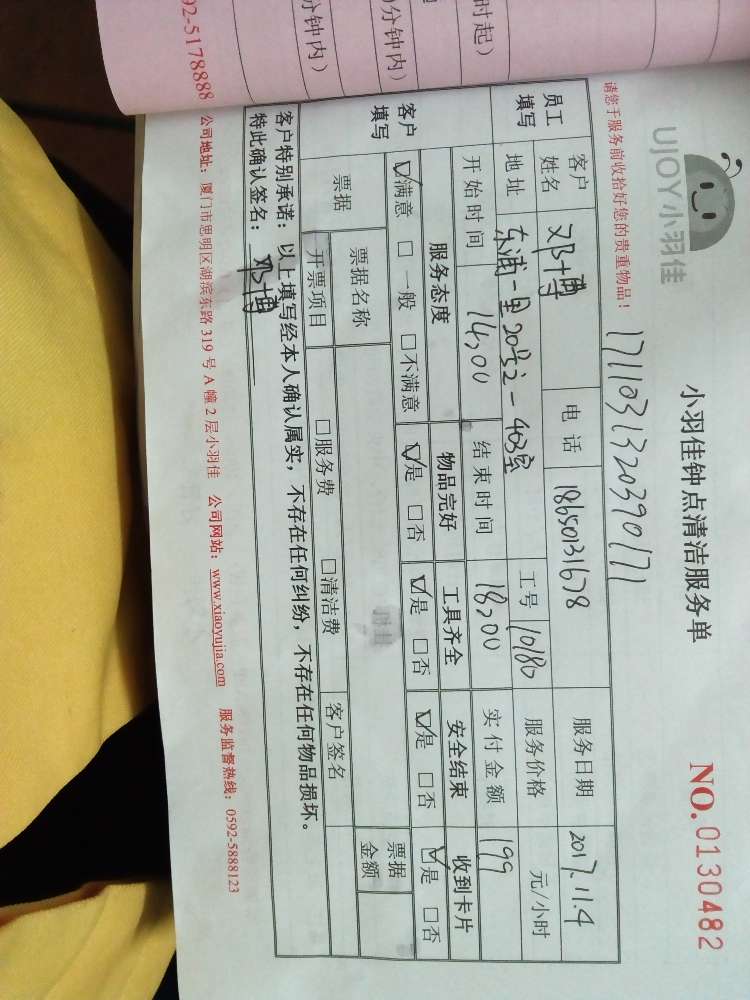 时起）
0分钟内）
分钟内）
92-5178888
UJOY小羽佳
小羽佳钟点清洁服务单
NO.0130482
请您于服务前收拾好您的贵重物品！
1711031320390171
员工填写
客户姓名 邓博 电话 18650131678 服务日期 2017.11.4
地址 东浦一里20号之一403室 工号 10180 服务价格 元/小时
开始时间 14:00 结束时间 18:00 实付金额 199
客户填写
服务态度 物品完好 工具齐全 安全结束 收到卡片
☑满意 □一般 □不满意 ☑是 □否 ☑是 □否 ☑是 □否 ☑是 □否
票据 票据名称 票据金额
开票项目 □服务费 □清洁费 客户签名
客户特别承诺：以上填写经本人确认属实，不存在任何纠纷，不存在任何物品损坏。
特此确认签名：邓博
公司地址：厦门市思明区湖滨东路 319 号 A 幢 2 层小羽佳 公司网站：www.xiaoyujia.com 服务监督热线：0592-5888123